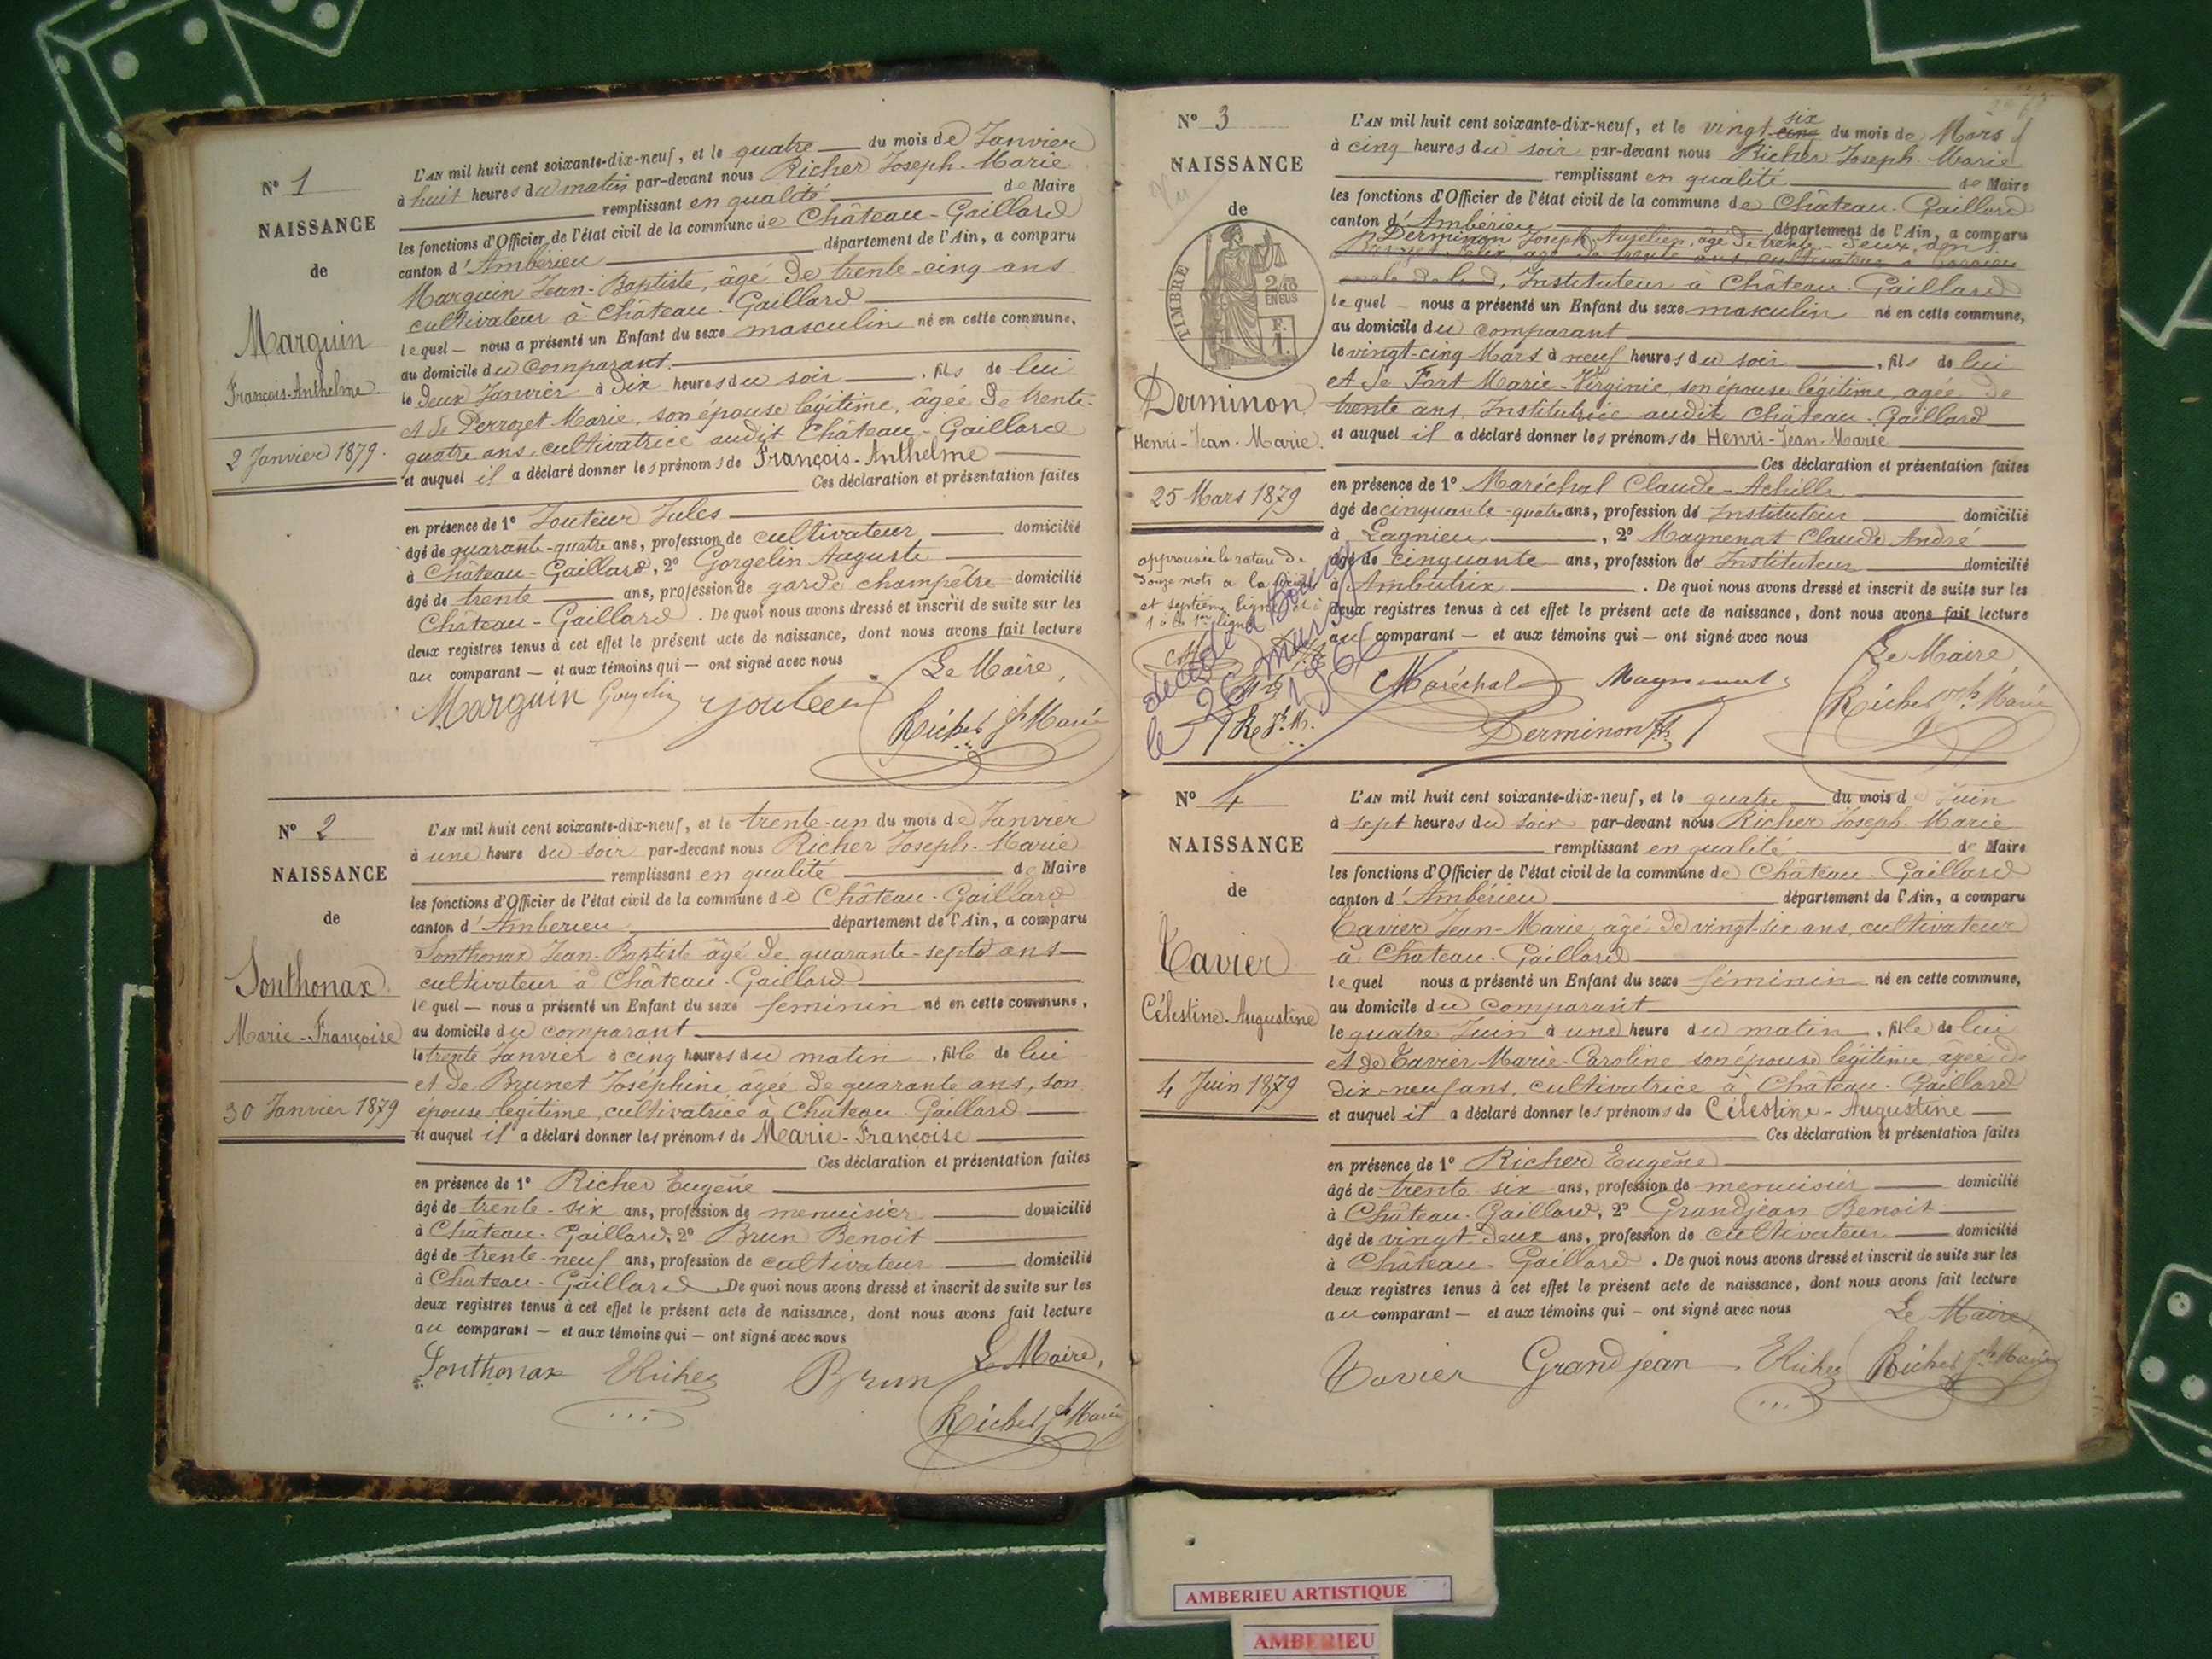 N° 1
NAISSANCE
de
Marguin
François-Anthelme
2 Janvier 1879.
L'AN mil huit cent soixante-dix-neuf, et le quatre du mois de Janvier
à huit heures du matin par-devant nous Richer Joseph-Marie
remplissant en qualité de Maire
les fonctions d'Officier de l'état civil de la commune de Château-Gaillard
canton d'Ambérieu département de l'Ain, a comparu
Marguin Jean-Baptiste, âgé de trente-cinq ans
cultivateur à Château-Gaillard
lequel — nous a présenté un Enfant du sexe masculin né en cette commune,
au domicile du comparant
le deux Janvier à dix heures du soir , fils de lui
et de Perrozet Marie, son épouse légitime, âgée de trente-
quatre ans, cultivatrice audit Château-Gaillard
et auquel il a déclaré donner les prénoms de François-Anthelme
Ces déclaration et présentation faites
en présence de 1° Jouteur Jules
âgé de quarante-quatre ans, profession de cultivateur domicilié
à Château-Gaillard, 2° Gorgelin Auguste
âgé de trente ans, profession de garde champêtre domicilié
Château-Gaillard. De quoi nous avons dressé et inscrit de suite sur les
deux registres tenus à cet effet le présent acte de naissance, dont nous avons fait lecture
au comparant — et aux témoins qui — ont signé avec nous
Le Maire,
Marguin Gorgelin Richer Jh Marie
N° 2
NAISSANCE
de
Sonthonax
Marie-Françoise
30 Janvier 1879
L'AN mil huit cent soixante-dix-neuf, et le trente-un du mois de Janvier
à une heure du soir par-devant nous Richer Joseph-Marie
remplissant en qualité de Maire
les fonctions d'Officier de l'état civil de la commune de Château-Gaillard
canton d'Amberieu département de l'Ain, a comparu
Sonthonax Jean-Baptiste âgé de quarante-sept ans
cultivateur à Château-Gaillard
lequel — nous a présenté un Enfant du sexe feminin né en cette commune,
au domicile du comparant
le trente Janvier à cinq heures du matin , fille de lui
et de Brunet Joséphine, âgée de quarante ans, son
épouse légitime, cultivatrice à Château-Gaillard
et auquel il a déclaré donner les prénoms de Marie-Françoise
Ces déclaration et présentation faites
en présence de 1° Richer Eugène
âgé de trente-six ans, profession de menuisier domicilié
à Château-Gaillard, 2° Brun Benoit
âgé de trente-neuf ans, profession de cultivateur domicilié
à Château-Gaillard De quoi nous avons dressé et inscrit de suite sur les
deux registres tenus à cet effet le présent acte de naissance, dont nous avons fait lecture
au comparant — et aux témoins qui — ont signé avec nous
Le Maire,
Sonthonax ERicher Brun
Richer Jh Marie
N° 3
NAISSANCE
de
TIMBRE
2/10
EN SUS
F.
1.
Derminon
Henri-Jean-Marie.
25 Mars 1879
approuvé la rature de
et septième ligne
décédé à Bourg
le 26 mars
1966
L'AN mil huit cent soixante-dix-neuf, et le vingt-cinq six du mois de Mars
à cinq heures du soir par-devant nous Richer Joseph-Marie
remplissant en qualité de Maire
les fonctions d'Officier de l'état civil de la commune de Château-Gaillard
canton d'Ambérieu département de l'Ain, a comparu
Derminon Joseph Aurélien, âgé de trente-deux ans
Instituteur à Château-Gaillard
lequel nous a présenté un Enfant du sexe masculin né en cette commune,
au domicile du comparant
le vingt-cinq Mars à neuf heures du soir , fils de lui
et de Fort Marie-Virginie, son épouse légitime, agée de
trente ans, Institutrice audit Château-Gaillard
et auquel il a déclaré donner les prénoms de Henri-Jean-Marie
Ces déclaration et présentation faites
en présence de 1° Maréchal Claude-Achille
âgé de cinquante-quatre ans, profession de Instituteur domicilié
à Lagnieu, 2° Magnenat Claude André
âgé de cinquante ans, profession de Instituteur domicilié
à Ambutrix . De quoi nous avons dressé et inscrit de suite sur les
deux registres tenus à cet effet le présent acte de naissance, dont nous avons fait lecture
au comparant — et aux témoins qui — ont signé avec nous
Le Maire
Maréchal Magnenat Richer Jh Marie
Derminon
N° 4
NAISSANCE
de
Tavier
Célestine-Augustine
4 Juin 1879
L'AN mil huit cent soixante-dix-neuf, et le quatre du mois de Juin
à sept heures du soir par-devant nous Richer Joseph-Marie
remplissant en qualité de Maire
les fonctions d'Officier de l'état civil de la commune de Château-Gaillard
canton d'Ambérieu département de l'Ain, a comparu
Tavier Jean-Marie, âgé de vingt-six ans, cultivateur
à Château-Gaillard
lequel nous a présenté un Enfant du sexe féminin né en cette commune,
au domicile du comparant
le quatre Juin à une heure du matin , fille de lui
et de Tavier Marie-Caroline son épouse légitime âgée de
dix-neuf ans, cultivatrice à Château-Gaillard
et auquel il a déclaré donner les prénoms de Célestine-Augustine
Ces déclaration et présentation faites
en présence de 1° Richer Eugène
âgé de trente six ans, profession de menuisier domicilié
à Château-Gaillard, 2° Grandjean Benoit
âgé de vingt-deux ans, profession de cultivateur domicilié
à Château-Gaillard. De quoi nous avons dressé et inscrit de suite sur les
deux registres tenus à cet effet le présent acte de naissance, dont nous avons fait lecture
au comparant — et aux témoins qui — ont signé avec nous
Le Maire,
Tavier Grandjean ERicher Richer Jh Marie
AMBERIEU ARTISTIQUE
AMBERIEU